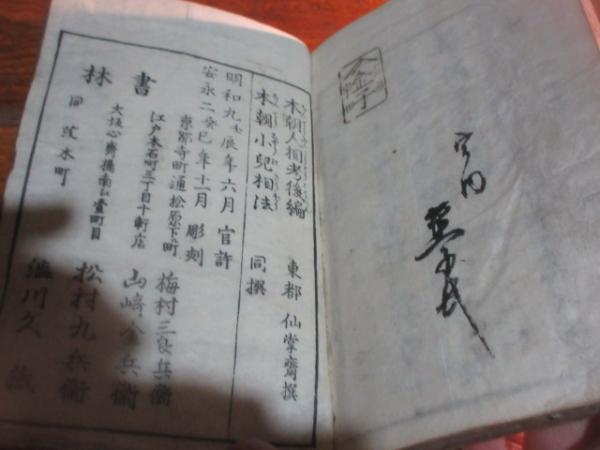 本朝人相考後編 東都 仙掌齋撰
本朝小兒相法 同撰
明和九壬辰年六月官許
安永二癸巳年十一月彫刻
京都寺町通松原下ル町 梅村三良兵衞
江戸本石町三丁目十軒店 山﨑金兵衞
書林
大坂心齋橋南江壹町目 松村九兵衞
同 木町 澁川久藏